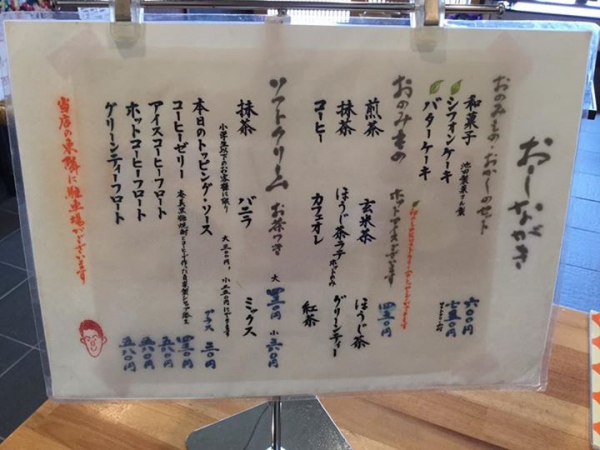 おしながき
おのみもの・おかしのセット
和菓子
シフォンケーキ
バターケーキ
六〇〇円
おのみもの
ホットアイスございます
四五〇円
煎茶
玄米茶
ほうじ茶
抹茶
ほうじ茶ラテ
グリーンティー
コーヒー
カフェオレ
紅茶
ソフトクリーム
お茶つき
大
円
小
円
抹茶
バニラ
ミックス
小学生以下のお客様に限り
本日のトッピング・ソース
プラス
三〇円
コーヒーゼリー
四五〇円
アイスコーヒーフロート
五六〇円
ホットコーヒーフロート
五六〇円
グリーンティーフロート
五八〇円
当店の東隣に駐車場がございます